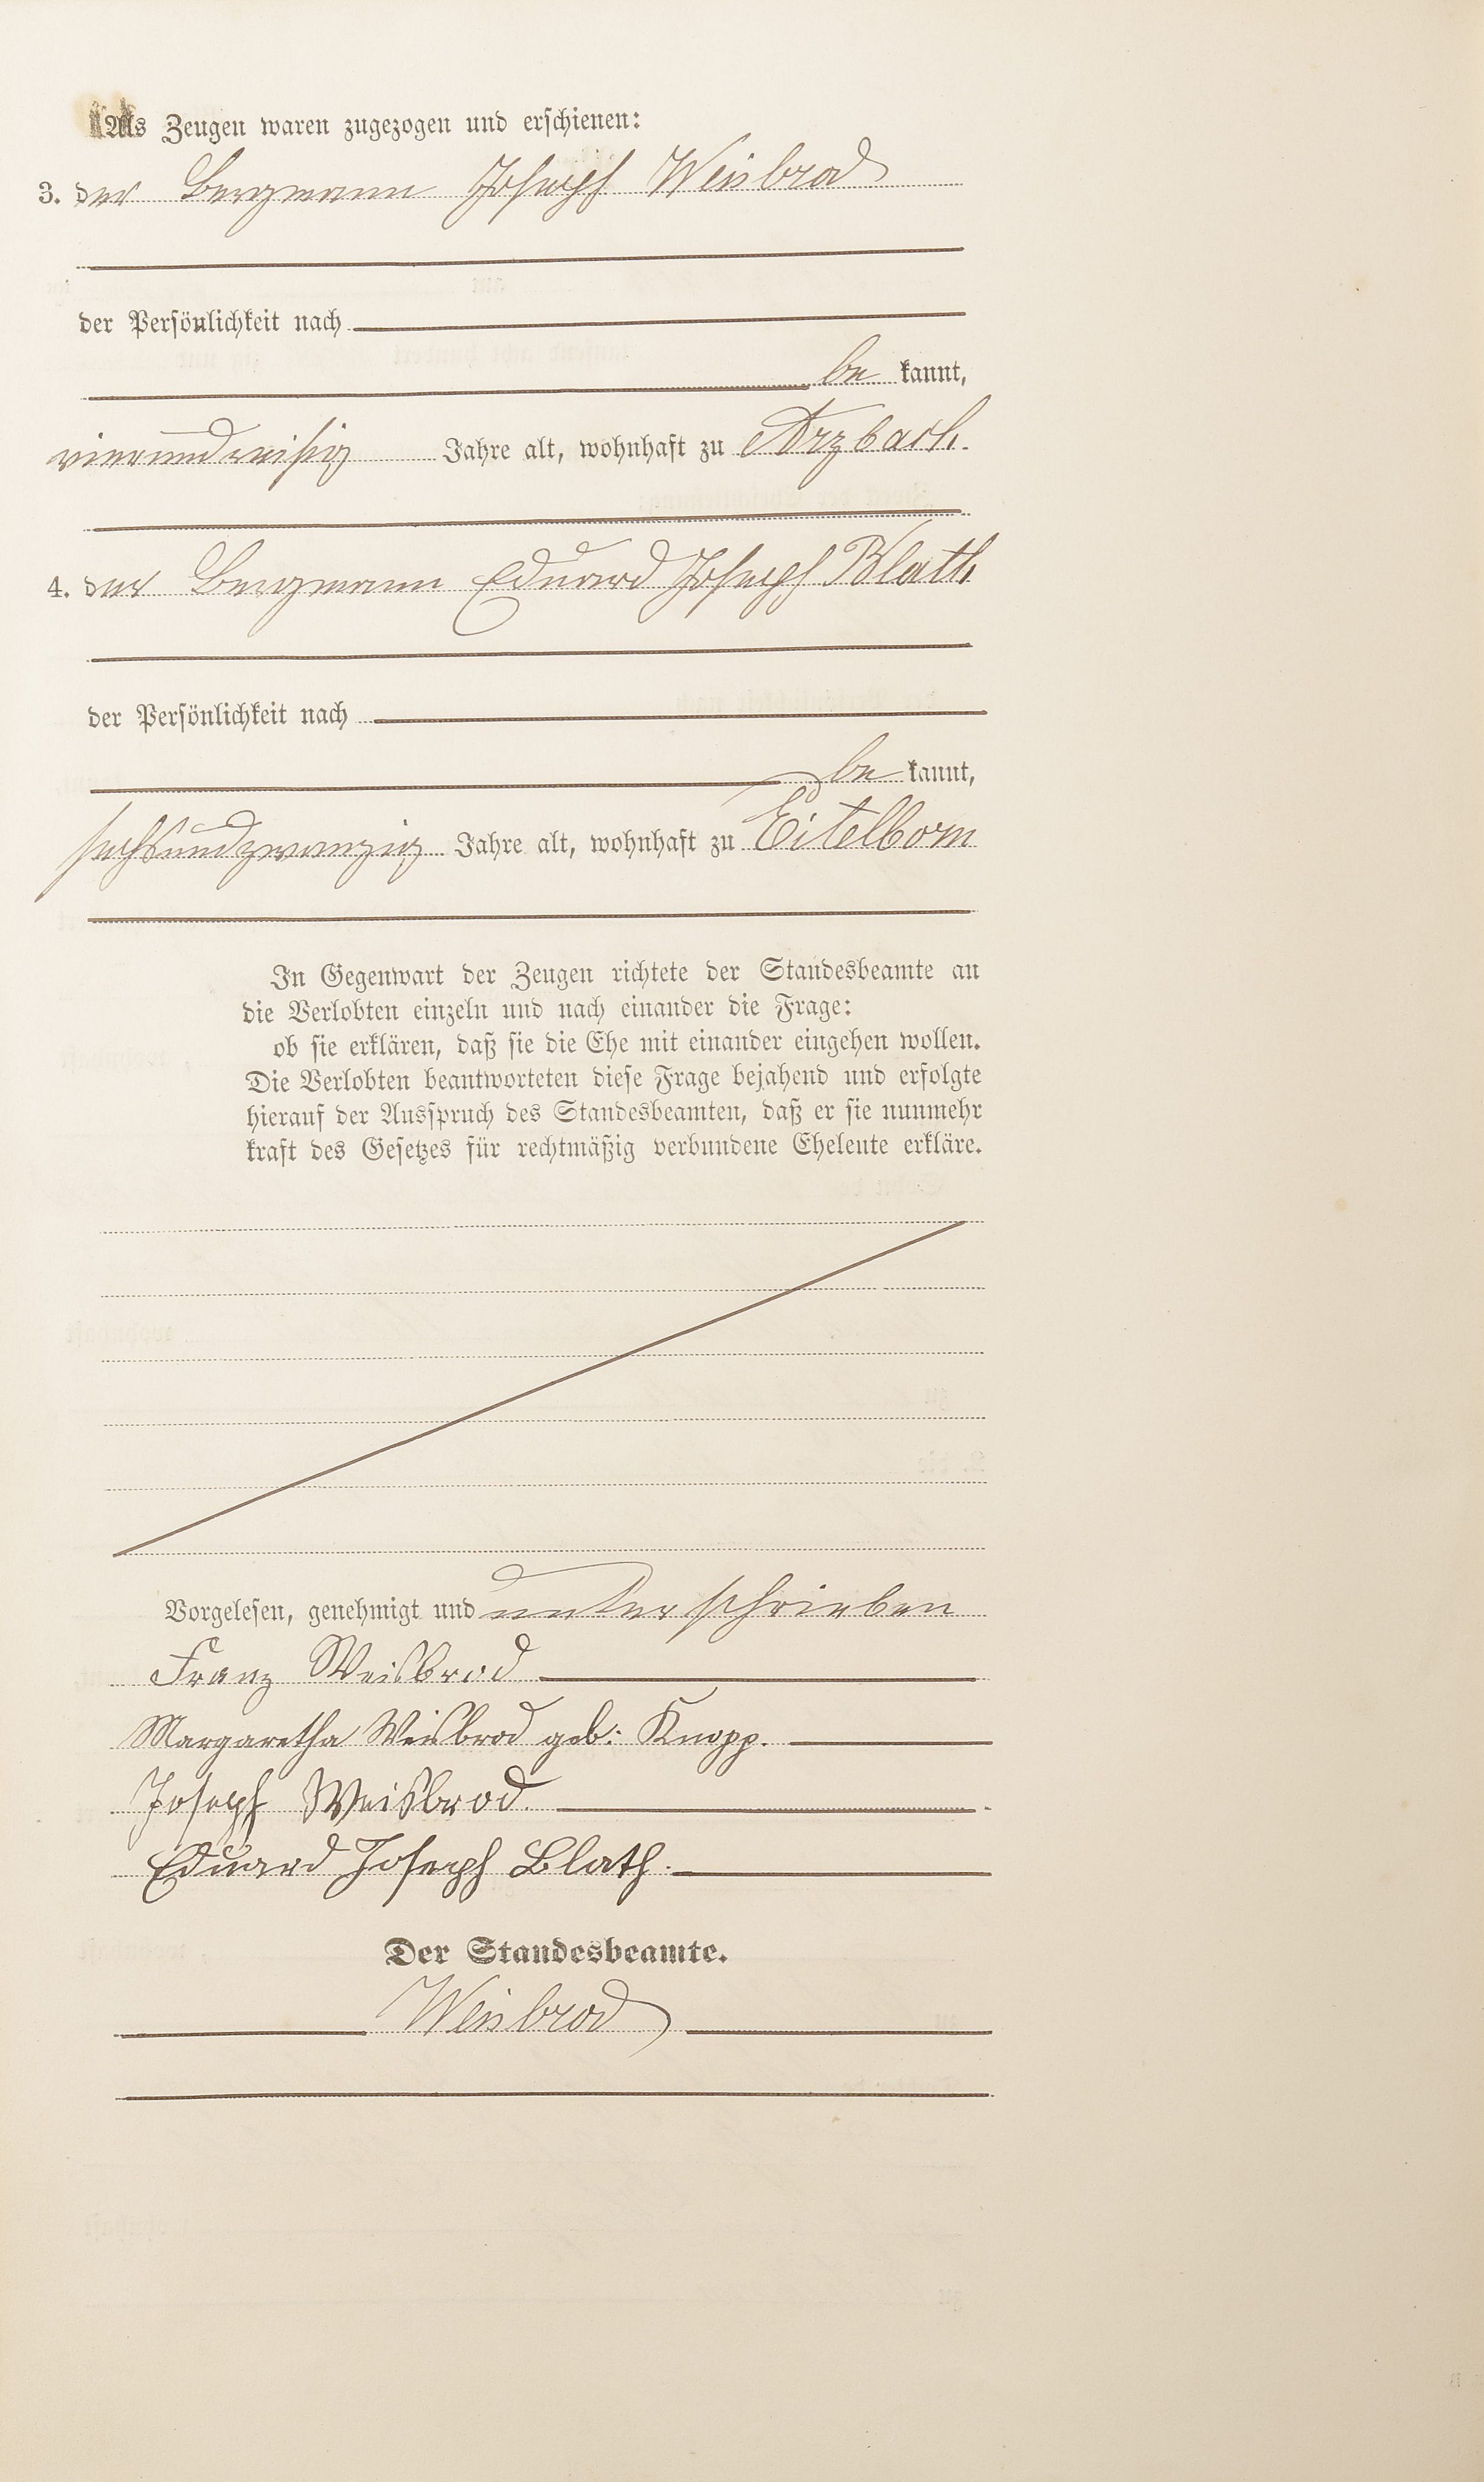 Als Zeugen waren zugezogen und erschienen:
3. der Bergmann Joseph Weisbrod
der Persönlichkeit nach
be kannt,
vierunddreißig Jahre alt, wohnhaft zu Arzbach.
4. der Bergmann Eduard Joseph Blath
der Persönlichkeit nach
be kannt,
sechsundzwanzig Jahre alt, wohnhaft zu Eitelborn
In Gegenwart der Zeugen richtete der Standesbeamte an
die Verlobten einzeln und nach einander die Frage:
ob sie erklären, daß sie die Ehe mit einander eingehen wollen.
Die Verlobten beantworteten diese Frage bejahend und erfolgte
hierauf der Ausspruch des Standesbeamten, daß er sie nunmehr
kraft des Gesetzes für rechtmäßig verbundene Eheleute erkläre.
Vorgelesen, genehmigt und unterschrieben
Franz Weisbrod
Margaretha Weisbrod geb: Knopp.
Joseph Weisbrod.
Eduard Joseph Blath.
Der Standesbeamte.
Weisbrod